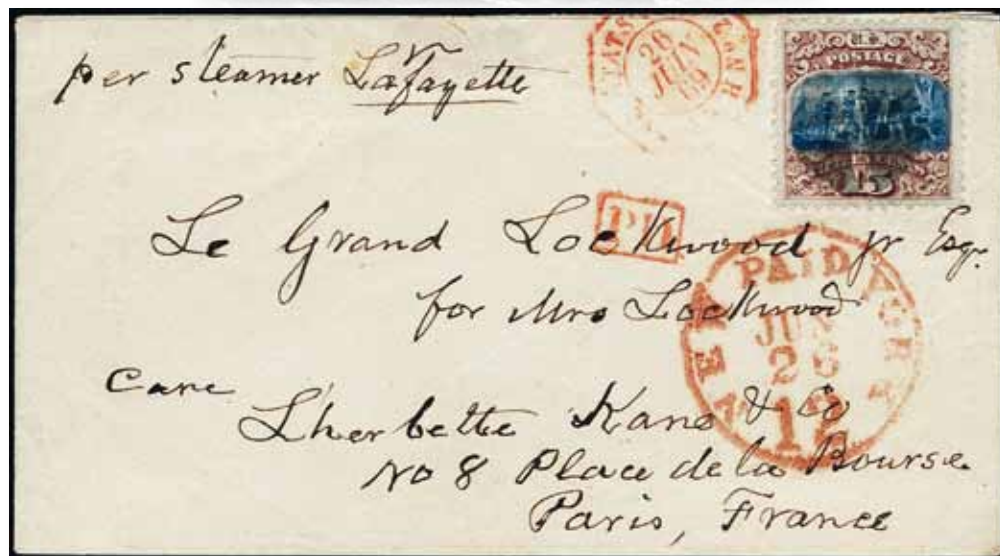 per steamer Lafayette
26
JUIN
69
U.S.
POSTAGE
15
PD
Le Grand Lockwood jr Esqr.
for Mrs Lockwood
NEW PAID YORK
JUN
26
12
Care
Lherbette Kane & Co
No 8 Place de la Bourse
Paris, France